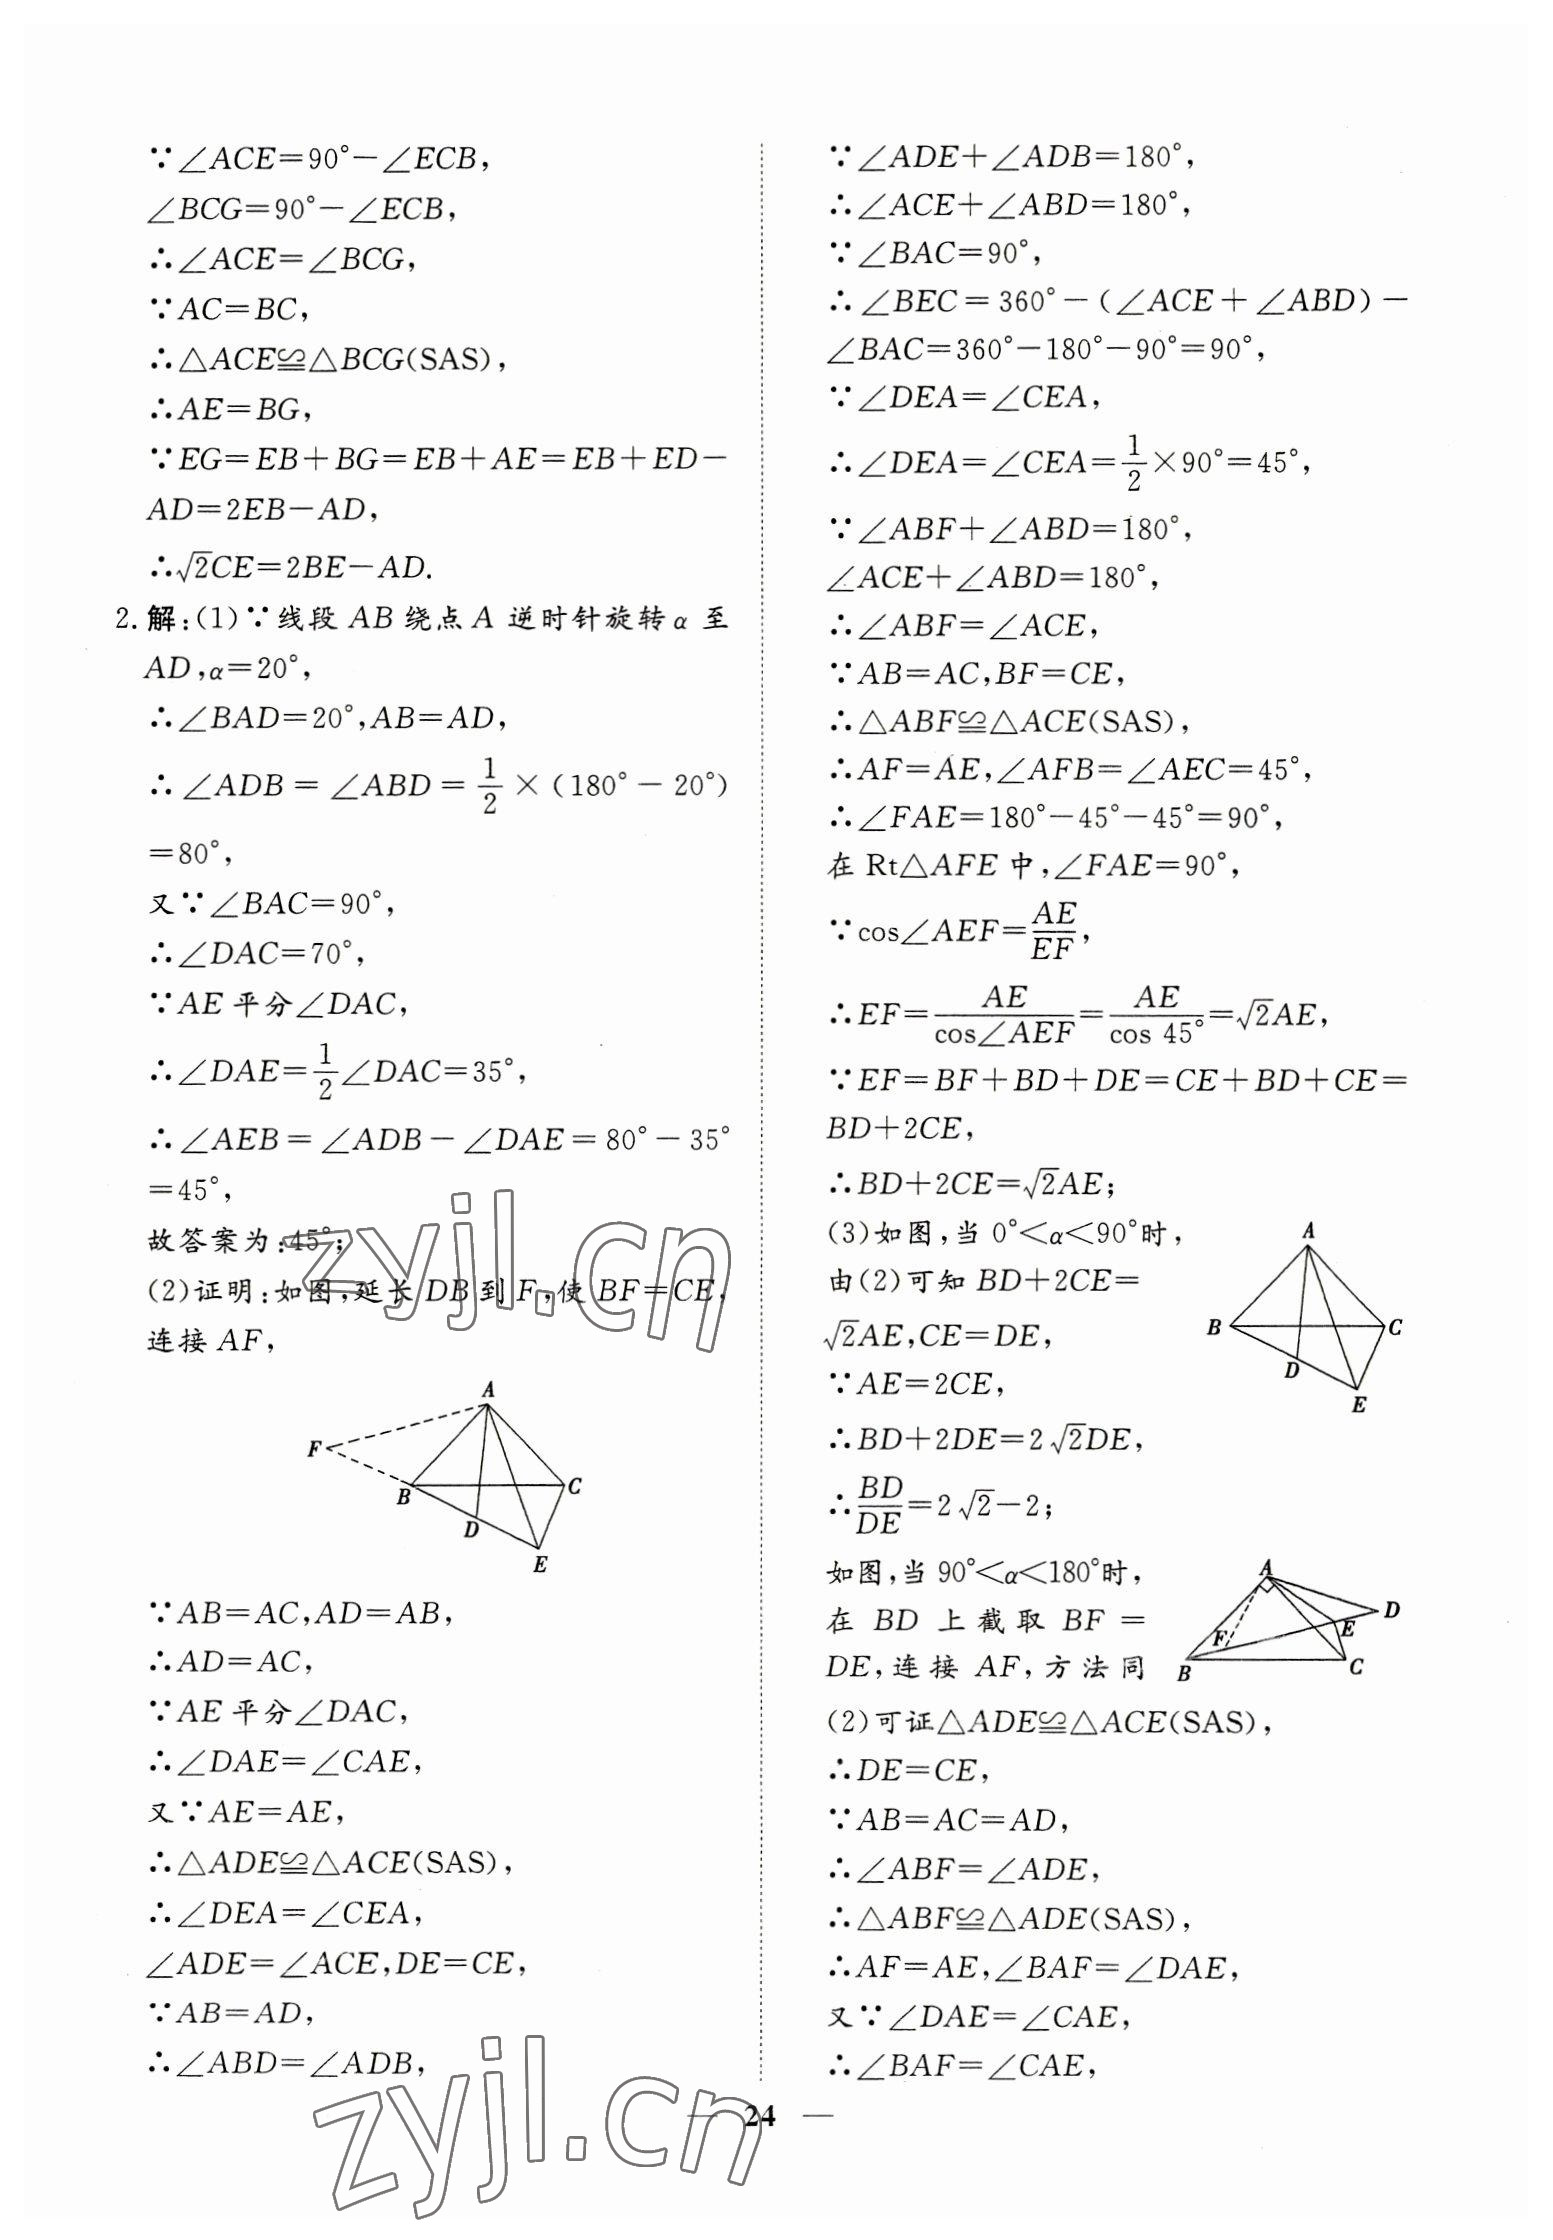 ∵∠ACE=90°-∠ECB,
∠BCG=90°-∠ECB,
∴∠ACE=∠BCG,
∵AC=BC,
∴△ACE≌△BCG(SAS),
∴AE=BG,
∵EG=EB+BG=EB+AE=EB+ED-
AD=2EB-AD,
∴√2CE=2BE-AD.
2.解:(1)∵线段AB绕点A逆时针旋转α至
AD,α=20°,
∴∠BAD=20°,AB=AD,
∴∠ADB=∠ABD=1/2×(180°-20°)
=80°,
又∵∠BAC=90°,
∴∠DAC=70°,
∵AE平分∠DAC,
∴∠DAE=1/2∠DAC=35°,
∴∠AEB=∠ADB-∠DAE=80°-35°
=45°,
故答案为:45°;
(2)证明:如图,延长DB到F,使BF=CE,
连接AF,
A
F
B
C
D
E
∵AB=AC,AD=AB,
∴AD=AC,
∵AE平分∠DAC,
∴∠DAE=∠CAE,
又∵AE=AE,
∴△ADE≌△ACE(SAS),
∴∠DEA=∠CEA,
∠ADE=∠ACE,DE=CE,
∵AB=AD,
∴∠ABD=∠ADB,
∵∠ADE+∠ADB=180°,
∴∠ACE+∠ABD=180°,
∵∠BAC=90°,
∴∠BEC=360°-(∠ACE+∠ABD)-
∠BAC=360°-180°-90°=90°,
∵∠DEA=∠CEA,
∴∠DEA=∠CEA=1/2×90°=45°,
∵∠ABF+∠ABD=180°,
∠ACE+∠ABD=180°,
∴∠ABF=∠ACE,
∵AB=AC,BF=CE,
∴△ABF≌△ACE(SAS),
∴AF=AE,∠AFB=∠AEC=45°,
∴∠FAE=180°-45°-45°=90°,
在Rt△AFE中,∠FAE=90°,
∵cos∠AEF=AE/EF,
∴EF=AE/cos∠AEF=AE/cos 45°=√2AE,
∵EF=BF+BD+DE=CE+BD+CE=
BD+2CE,
∴BD+2CE=√2AE;
(3)如图,当0°<α<90°时,
由(2)可知BD+2CE=
√2AE,CE=DE,
∵AE=2CE,
∴BD+2DE=2√2DE,
∴BD/DE=2√2-2;
A
B
C
D
E
如图,当90°<α<180°时,
在BD上截取BF=
DE,连接AF,方法同
(2)可证△ADE≌△ACE(SAS),
A
D
E
F
B
C
∴DE=CE,
∵AB=AC=AD,
∴∠ABF=∠ADE,
∴△ABF≌△ADE(SAS),
∴AF=AE,∠BAF=∠DAE,
又∵∠DAE=∠CAE,
∴∠BAF=∠CAE,
— 24 —
zyjl.cn
zyjl.cn